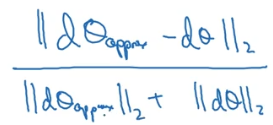 ‖dθ_approx - dθ‖₂
‖dθ_approx‖₂ + ‖dθ‖₂